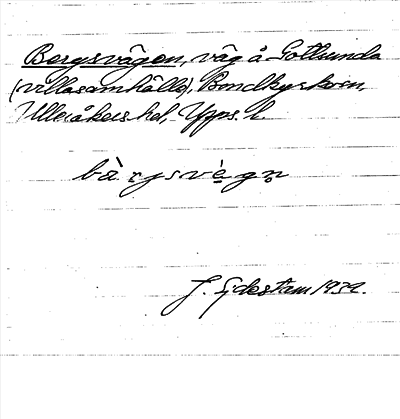 Bergsvägen, väg å Gottsunda
(villasamhälle), Bondkyrko sn,
Ulleråkers hd, Upps. l.
bàrgsvègn̥
J. Sjdestam 1932.